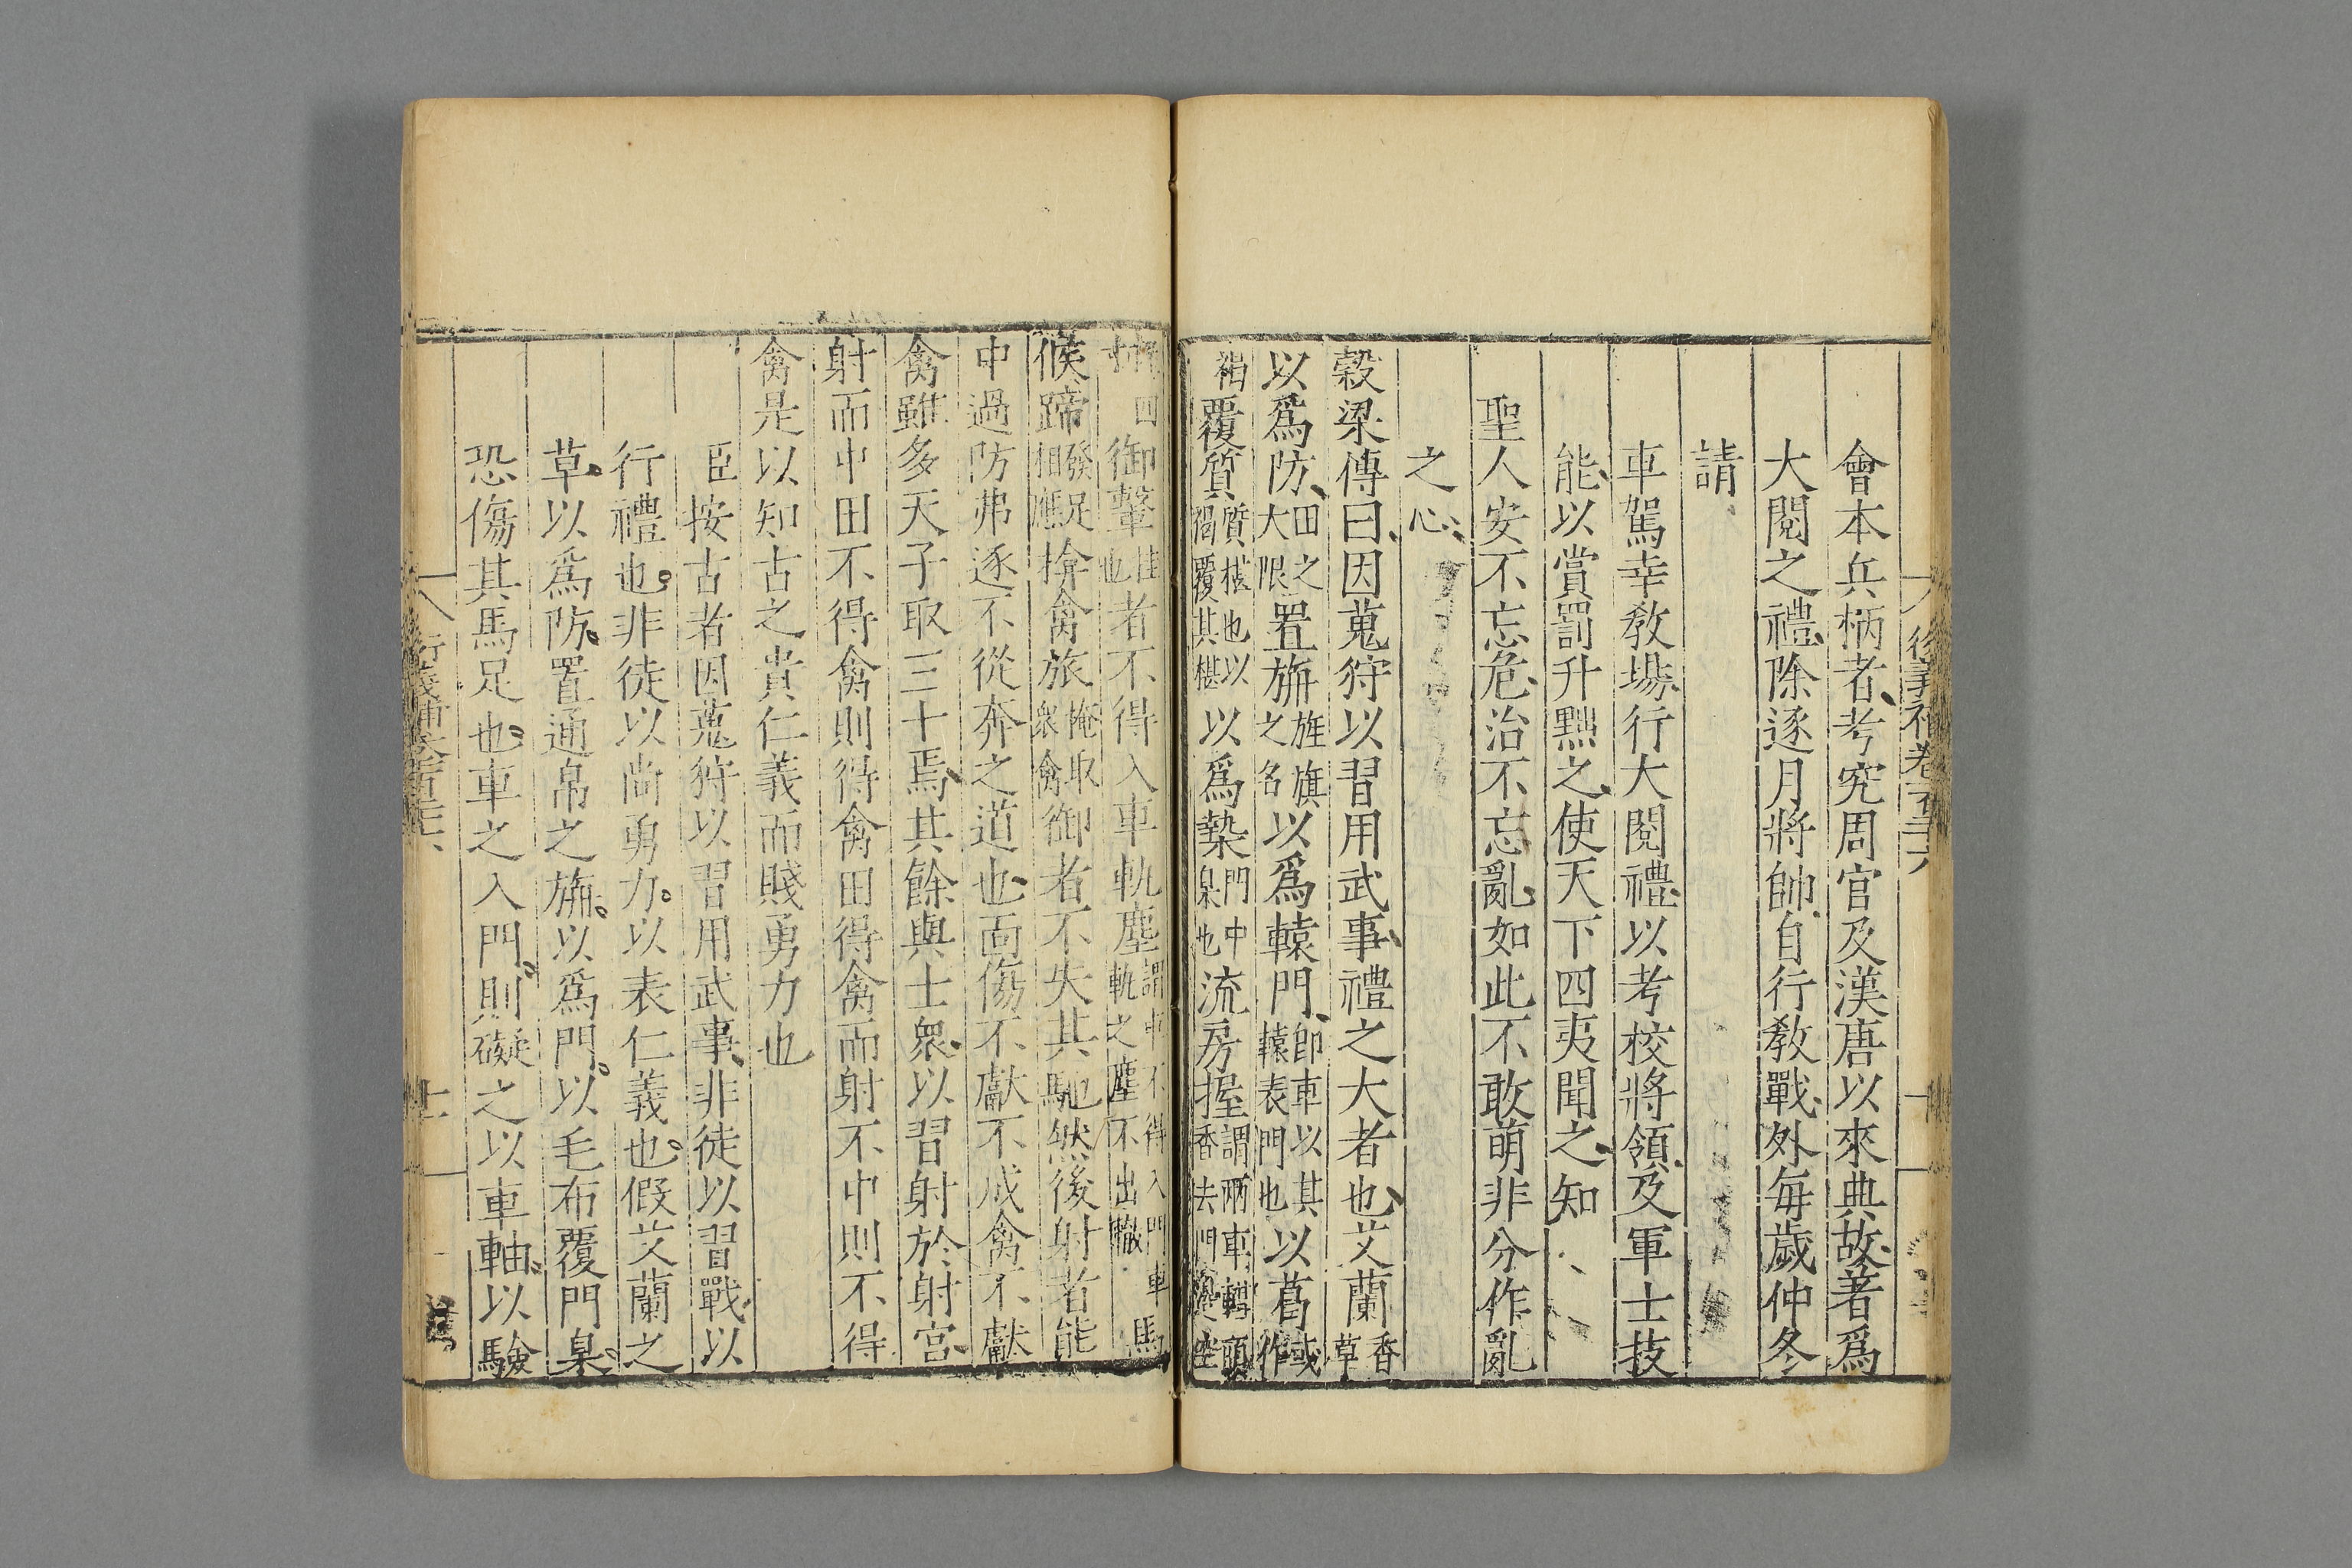 會本兵柄者考究周官及漢唐以來典故著爲
大閱之禮除逐月將帥自行教戰外每歲仲冬
請
車駕幸教場行大閱禮以考校將領及軍士技
能以賞罰升黜之使天下四夷聞之知
聖人安不忘危治不忘亂如此不敢萌非分作亂
之心
穀梁傳曰因蒐狩以習用武事禮之大者也艾蘭香草
以爲防田之大限置旃旌旗之名以爲轅門卽車以其轅表門也以葛或作
褐覆質質椹也以褐覆其椹以爲槷門中臬也流房握謂兩車轊頭各去門邊空
握四寸御轚挂也者不得入車軌塵謂車不得入門車馬軌之塵不出轍
候蹄發足相應揜禽旅掩取衆禽御者不失其馳然後射者能
中過防弗逐不從奔之道也面傷不獻不成禽不獻
禽雖多天子取三十焉其餘與士衆以習射於射宮
射而中田不得禽則得禽田得禽而射不中則不得
禽是以知古之貴仁義而賤勇力也
臣按古者因蒐狩以習用武事非徒以習戰以
行禮也非徒以尚勇力以表仁義也假艾蘭之
草以爲防置通帛之旃以爲門以毛布覆門臬
恐傷其馬足也車之入門則礙之以車軸以驗